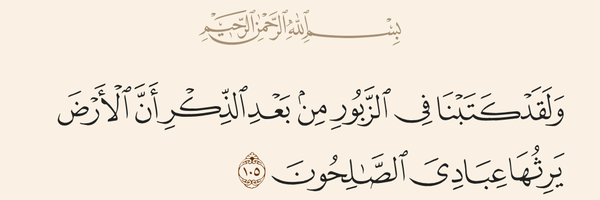 بِسْمِ ٱللَّهِ ٱلرَّحْمَٰنِ ٱلرَّحِيمِ
وَلَقَدْ كَتَبْنَا فِى ٱلزَّبُورِ مِنۢ بَعْدِ ٱلذِّكْرِ أَنَّ ٱلْأَرْضَ
يَرِثُهَا عِبَادِىَ ٱلصَّٰلِحُونَ ١٠٥